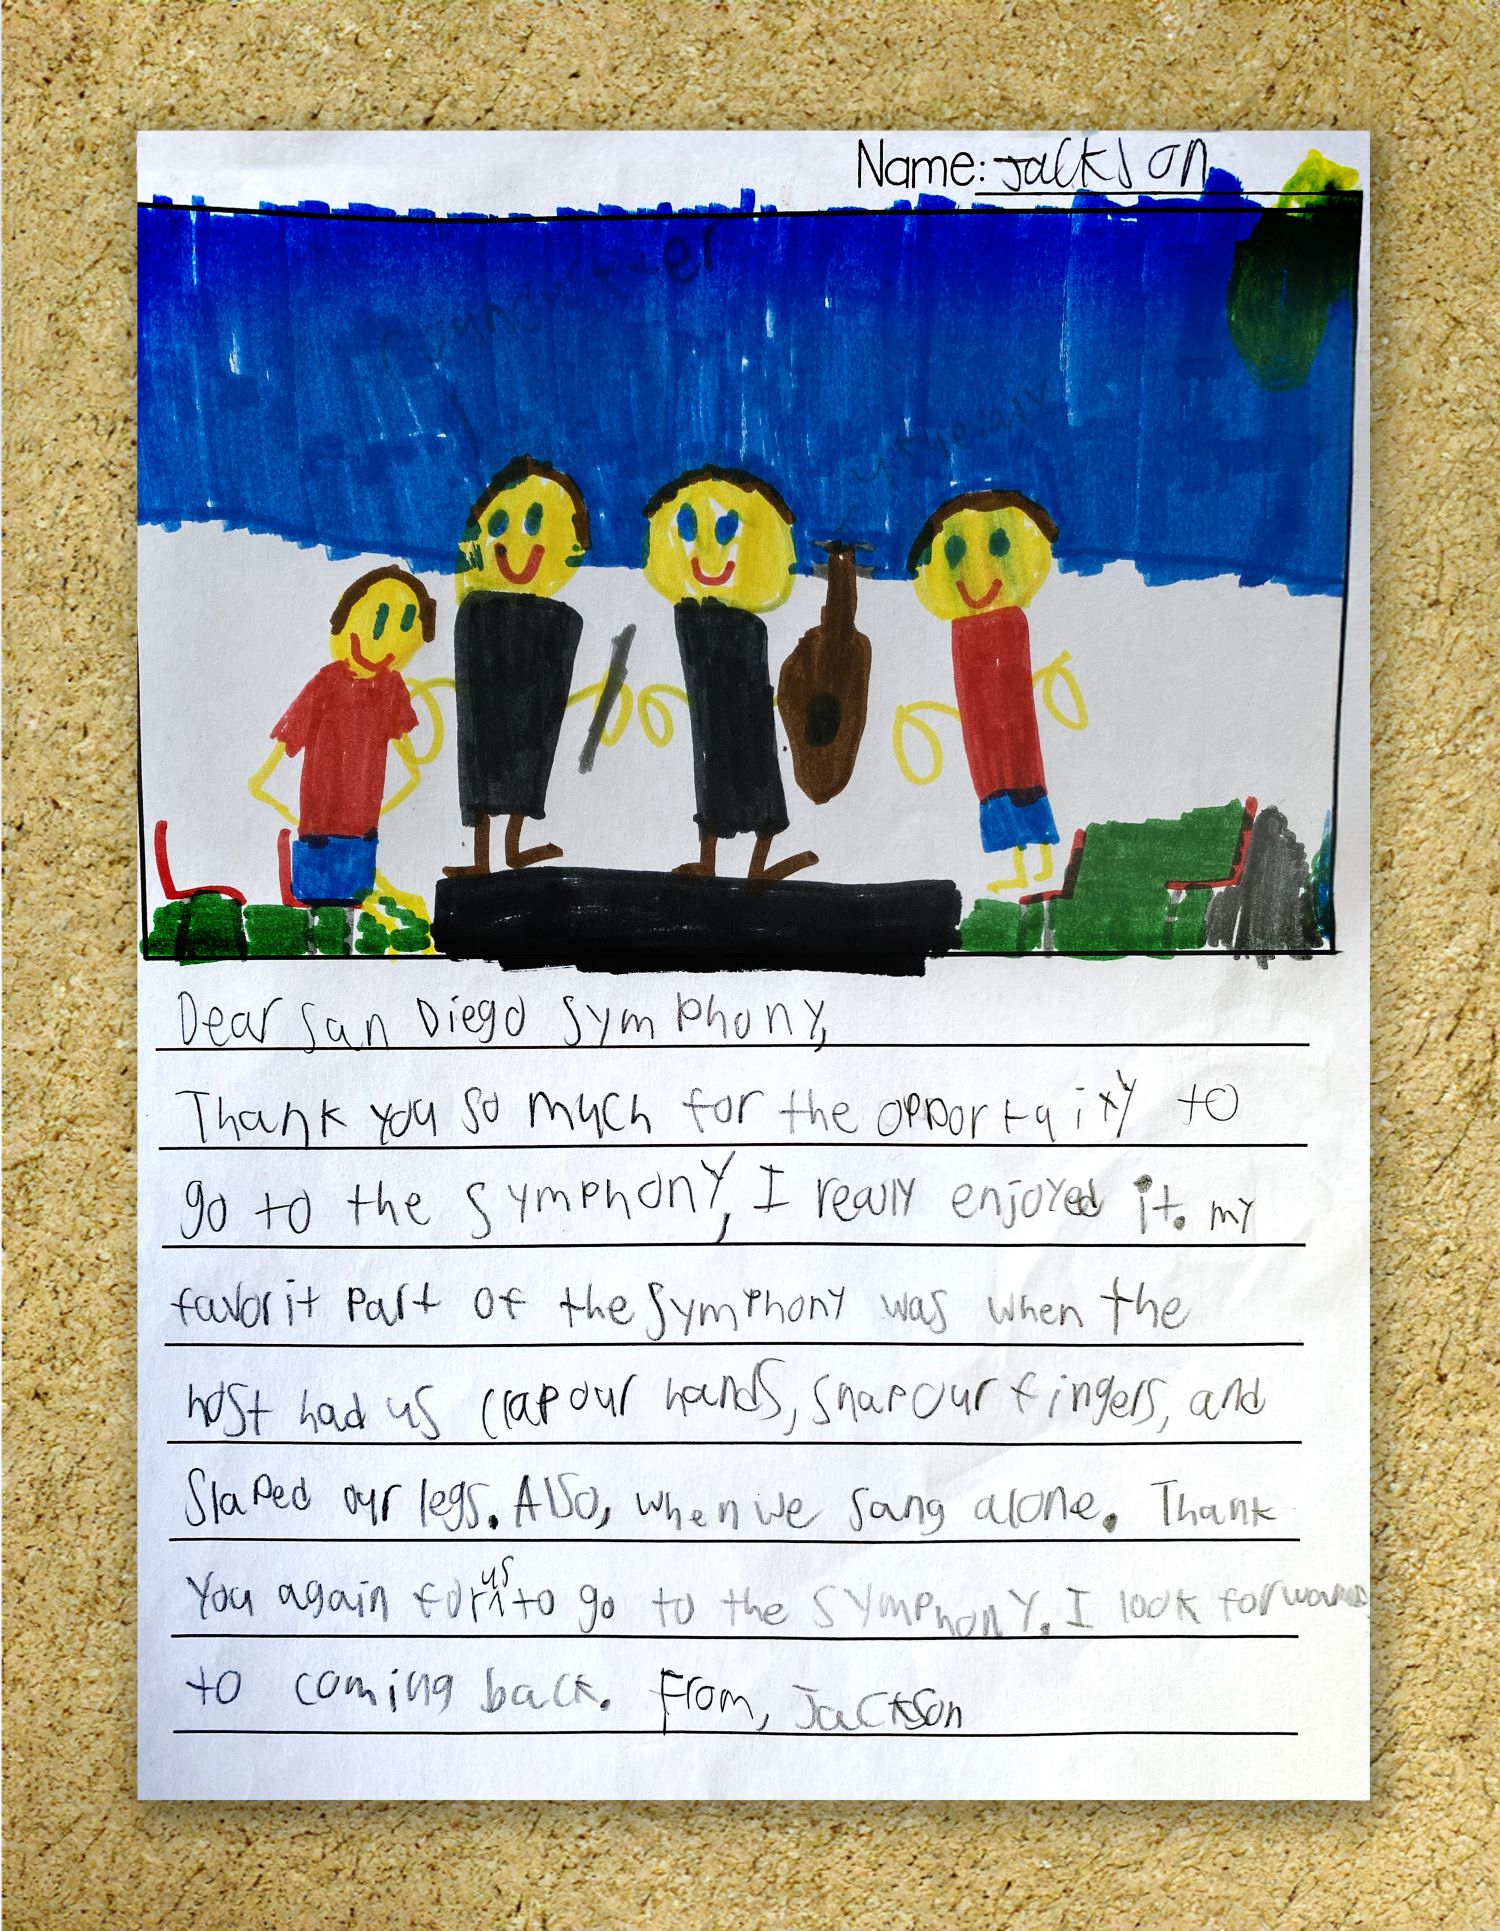 Name: Jackson
Dear San Diego Symphony,
Thank you so much for the opportuixy to
go to the symphony, I really enjoyed it. my
favorit part of the symphony was when the
host had us clap our hands, snap our fingers, and
slaped our legs. Also, when we sang alone. Thank
you again for us to go to the symphony. I look forward
to coming back. From, Jackson